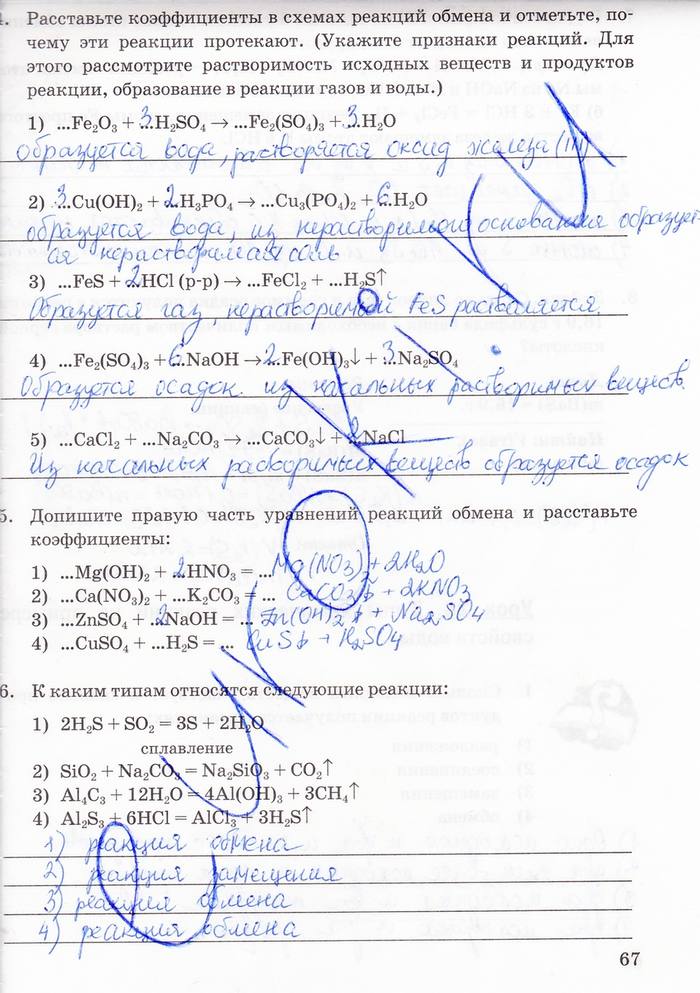 4. Расставьте коэффициенты в схемах реакций обмена и отметьте, по-
чему эти реакции протекают. (Укажите признаки реакций. Для
этого рассмотрите растворимость исходных веществ и продуктов
реакции, образование в реакции газов и воды.)
1) ...Fe₂O₃ + 3H₂SO₄ → ...Fe₂(SO₄)₃ + 3H₂O
образуется вода, растворяется оксид железа (III)
2) 3Cu(OH)₂ + 2H₃PO₄ → ...Cu₃(PO₄)₂ + 6H₂O
образуется вода, из нерастворимого основания образует-
ся нерастворимая соль
3) ...FeS + 2HCl (р-р) → ...FeCl₂ + ...H₂S↑
Образуется газ, нерастворимый FeS растворяется.
4) ...Fe₂(SO₄)₃ + 6NaOH → 2Fe(OH)₃↓ + 3Na₂SO₄
Образуется осадок из начальных растворимых веществ.
5) ...CaCl₂ + ...Na₂CO₃ → ...CaCO₃↓ + 2NaCl
Из начальных растворимых веществ образуется осадок
5. Допишите правую часть уравнений реакций обмена и расставьте
коэффициенты:
1) ...Mg(OH)₂ + 2HNO₃ = ...Mg(NO₃)₂ + 2H₂O
2) ...Ca(NO₃)₂ + ...K₂CO₃ = ...CaCO₃↓ + 2KNO₃
3) ...ZnSO₄ + 2NaOH = ...Zn(OH)₂↓ + Na₂SO₄
4) ...CuSO₄ + ...H₂S = ...CuS↓ + H₂SO₄
6. К каким типам относятся следующие реакции:
1) 2H₂S + SO₂ = 3S + 2H₂O
сплавление
2) SiO₂ + Na₂CO₃ = Na₂SiO₃ + CO₂↑
3) Al₄C₃ + 12H₂O = 4Al(OH)₃ + 3CH₄↑
4) Al₂S₃ + 6HCl = AlCl₃ + 3H₂S↑
1) реакция обмена
2) реакция замещения
3) реакция обмена
4) реакция обмена
67